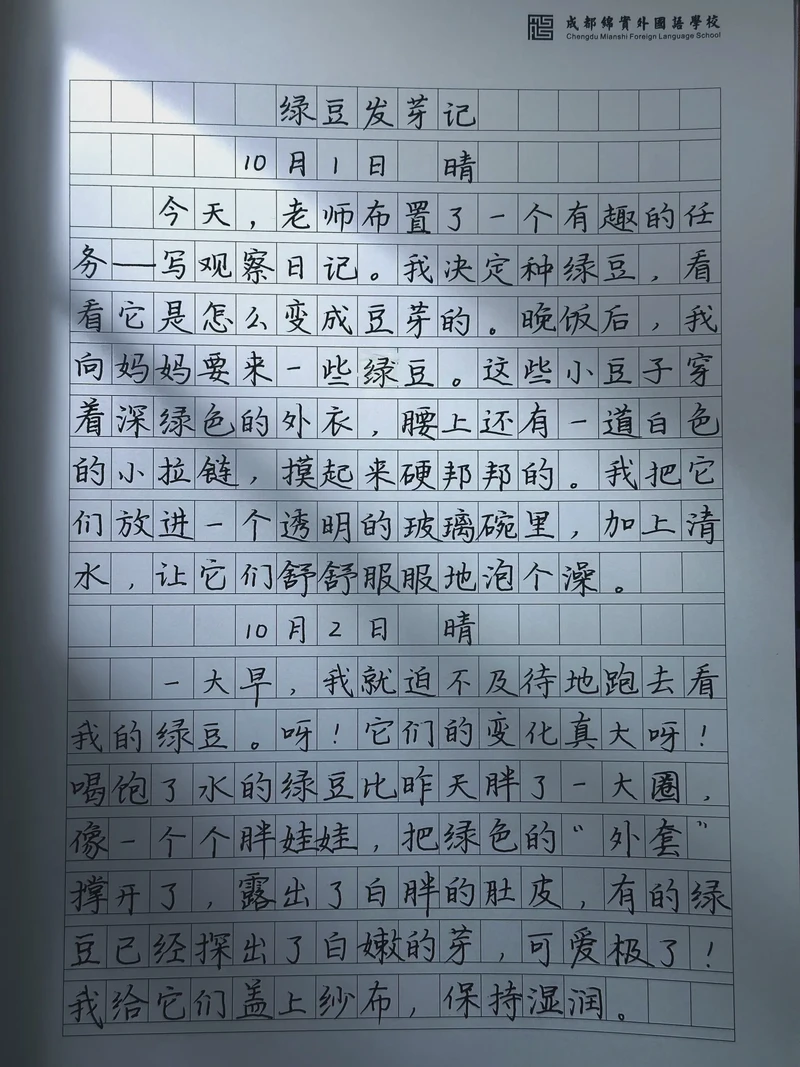 成都綿實外國語學校
Chengdu Mianshi Foreign Language School
绿豆发芽记
10月1日 晴
今天，老师布置了一个有趣的任
务——写观察日记。我决定种绿豆，看
看它是怎么变成豆芽的。晚饭后，我
向妈妈要来一些绿豆。这些小豆子穿
着深绿色的外衣，腰上还有一道白色
的小拉链，摸起来硬邦邦的。我把它
们放进一个透明的玻璃碗里，加上清
水，让它们舒舒服服地泡个澡。
10月2日 晴
一大早，我就迫不及待地跑去看
我的绿豆。呀！它们的变化真大呀！
喝饱了水的绿豆比昨天胖了一大圈，
像一个个胖娃娃，把绿色的“外套”
撑开了，露出了白胖的肚皮，有的绿
豆已经探出了白嫩的芽，可爱极了！
我给它们盖上纱布，保持湿润。